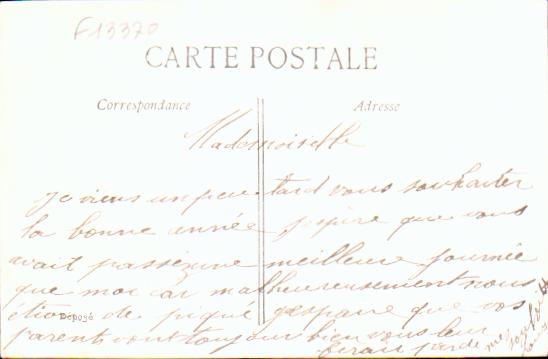 F13370
CARTE POSTALE
Correspondance
Adresse
Mademoiselle
Je viens un peu tard vous souhaiter
la bonne année j'espère que vous
avait passez une meilleure journée
que moi car malheureusement nous
étions de piqué j'espere que vos
parents vont toujour bien vous leur
ferais
Déposé